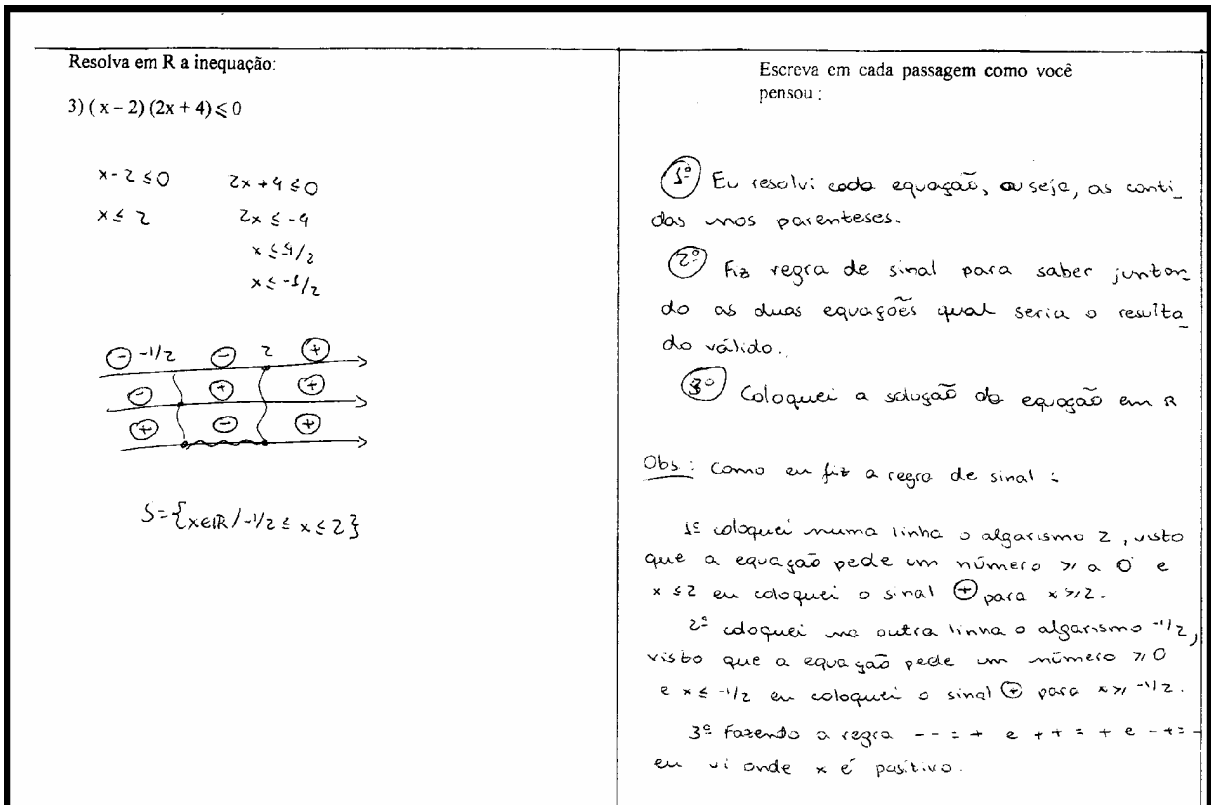 Resolva em R a inequação:
3) ( x – 2) (2x + 4) ⩽ 0
x - 2 ≤ 0 2x + 4 ≤ 0
x ≤ 2 2x ≤ -4
x ≤ -1/2
⊖ -1/2 ⊖ 2 ⊕
⊖ ⊕ ⊕
⊕ ⊖ ⊕
S={x∈ℝ/-1/2 ≤ x ≤ 2}
Escreva em cada passagem como você
pensou :
1º Eu resolvi cada equação, ou seja, as conti_
das nos parenteses.
2º Fiz regra de sinal para saber juntan_
do as duas equações qual seria o resulta_
do válido.
3º Coloquei a solução da equação em R
Obs.: Como eu fiz a regra de sinal :
1º coloquei numa linha o algarismo 2, visto
que a equação pede um número ⩾ a 0 e
x ≤ 2 eu coloquei o sinal ⊕ para x ⩾ 2.
2º coloquei na outra linha o algarismo -1/2,
visto que a equação pede um número ⩾ 0
e x ≤ -1/2 eu coloquei o sinal ⊕ para x ⩾ -1/2.
3º Fazendo a regra - - = + e + + = + e - + = -
eu vi onde x é positivo.